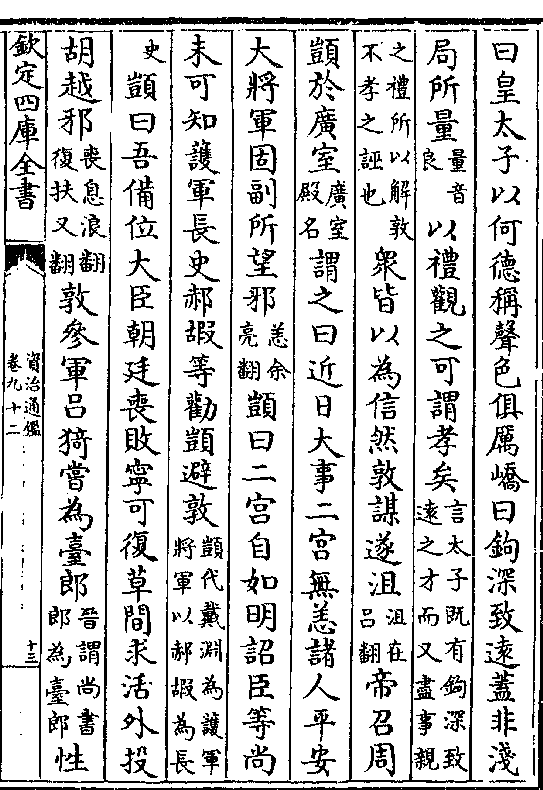 曰皇太子以何德稱聲色俱厲嶠曰鉤深致遠蓋非淺
局所量量音良以禮觀之可謂孝矣言太子既有鉤深致遠之才而又盡事親
之禮所以解敦不孝之誣也眾皆以為信然敦謀遂沮沮在吕翻帝召周
顗於廣室廣室殿名謂之曰近日大事二宮無恙諸人平安
大將軍固副所望邪恙余亮翻顗曰二宮自如明詔臣等尚
未可知護軍長史郝嘏等勸顗避敦顗代戴淵為護軍將軍以郝嘏為長
史顗曰吾備位大臣朝廷喪敗寧可復草間求活外投
胡越邪喪息浪翻復扶又翻敦參軍吕猗嘗為臺郎晉謂尚書郎為臺郎性
欽定四庫全書
資治通鑑
卷九十二
十三